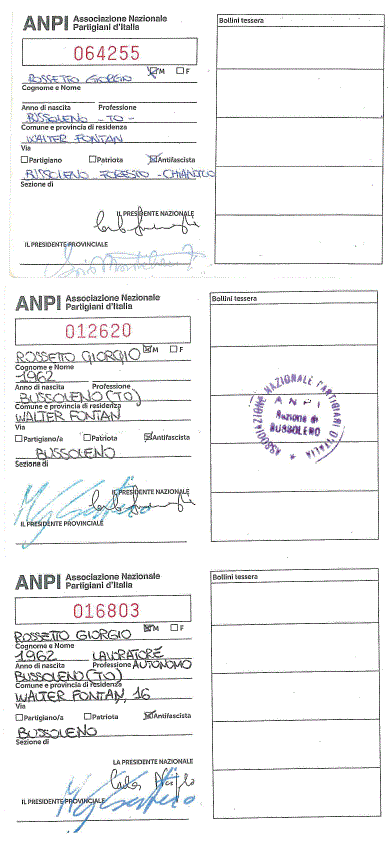 ANPI Associazione Nazionale
Partigiani d'Italia
064255
ROSSETTO GIORGIO M F
Cognome e Nome
Anno di nascita Professione
BUSSOLENO - TO -
Comune e provincia di residenza
WALTER FONTAN
Via
Partigiano Patriota Antifascista
BUSSOLENO FORESTO - CHIANOCCO
Sezione di
IL PRESIDENTE NAZIONALE
IL PRESIDENTE PROVINCIALE
Bollini tessera
ANPI Associazione Nazionale
Partigiani d'Italia
012620
ROSSETTO GIORGIO M F
Cognome e Nome
1962
Anno di nascita Professione
BUSSOLENO (TO)
Comune e provincia di residenza
WALTER FONTAN
Via
Partigiano/a Patriota Antifascista
BUSSOLENO
Sezione di
IL PRESIDENTE NAZIONALE
IL PRESIDENTE PROVINCIALE
Bollini tessera
ASSOCIAZIONE NAZIONALE PARTIGIANI D'ITALIA
A N P I
Sezione di
BUSSOLENO
ANPI Associazione Nazionale
Partigiani d'Italia
016803
ROSSETTO GIORGIO M F
Cognome e Nome
1962 LAVORATORE
Anno di nascita Professione AUTONOMO
BUSSOLENO (TO)
Comune e provincia di residenza
WALTER FONTAN, 16
Via
Partigiano/a Patriota Antifascista
BUSSOLENO
Sezione di
LA PRESIDENTE NAZIONALE
IL PRESIDENTE PROVINCIALE
Bollini tessera